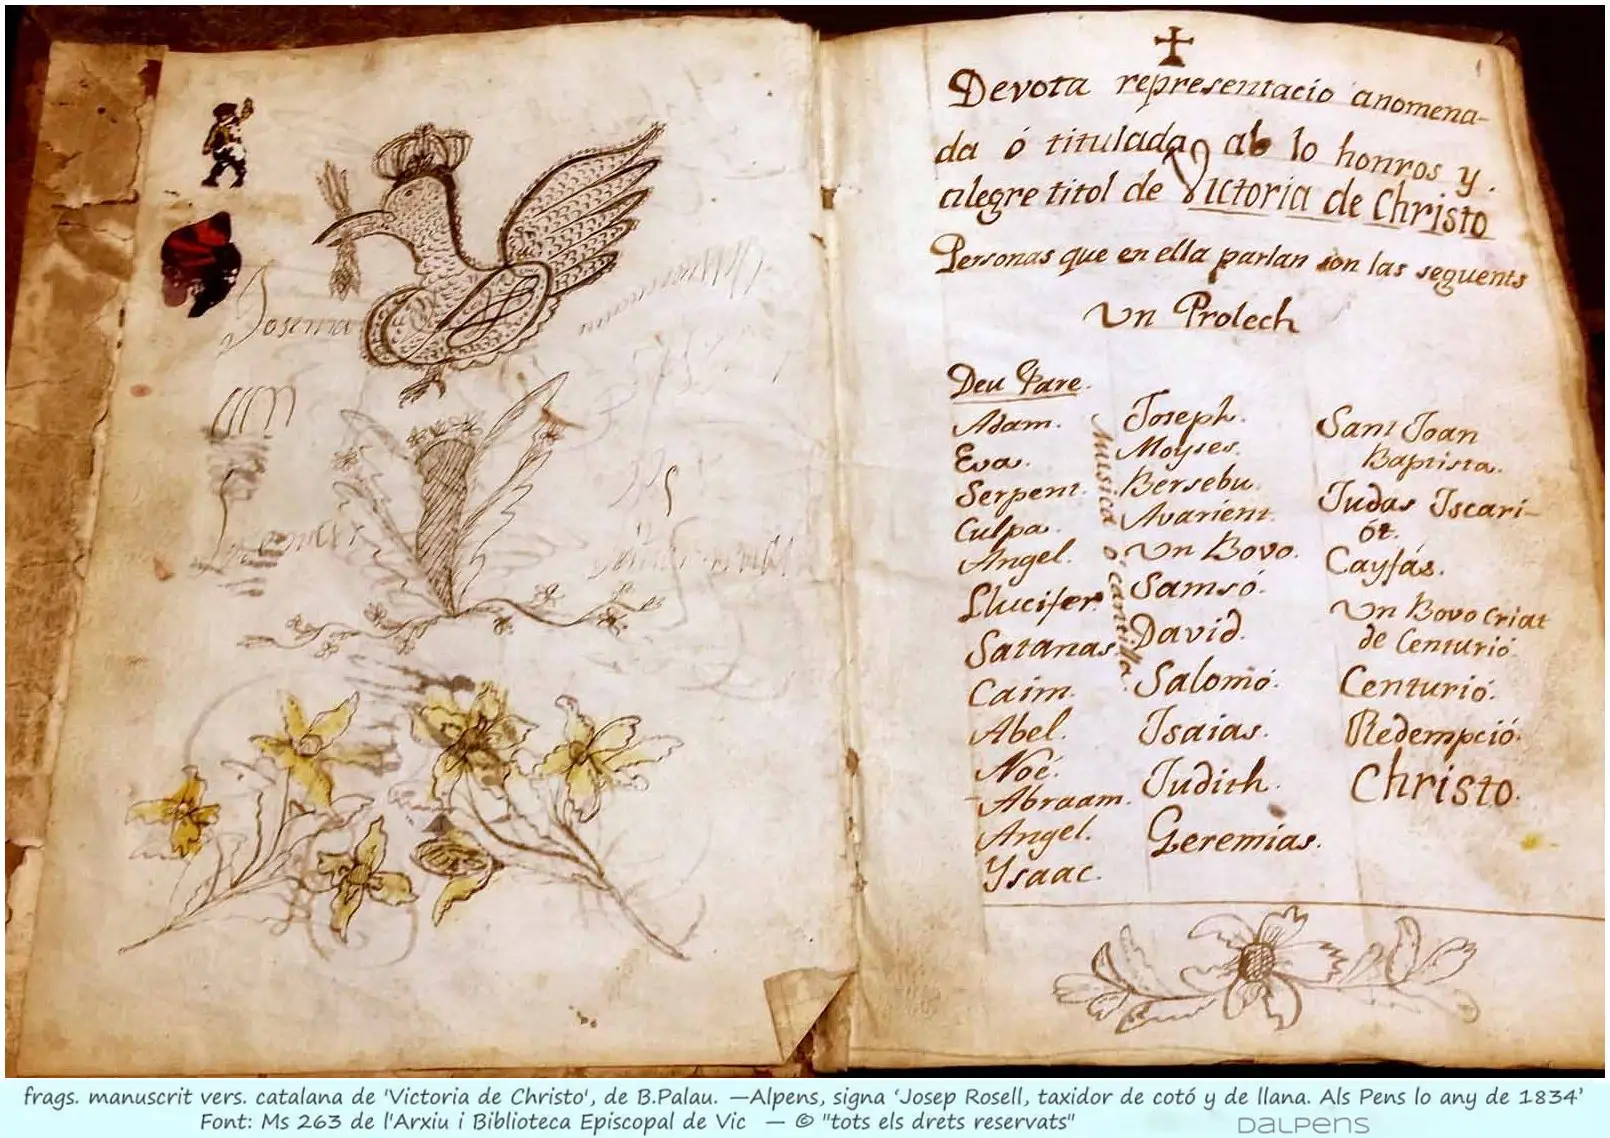 Josema
Devota representacio anomena-
da ó titulada ab lo honros y.
alegre titol de Victoria de Christo
Personas que en ella parlan son las seguents
Un Prolech
Deu Pare.
Adam.
Eva.
Serpent.
Culpa.
Angel.
Llucifer.
Satanas.
Caim.
Abel.
Noé.
Abraam.
Angel.
Ysaac.
Musica o cantilla.
Joseph.
Moyses.
Bersebu.
Avarient.
Un Bovo.
Samsó.
David.
Salomó.
Isaias.
Judith.
Geremias.
Sant Joan
Baptista.
Judas Iscari-
ót.
Cayfás.
Un Bovo criat
de Centurió.
Centurió.
Redempció.
Christo.
frags. manuscrit vers. catalana de 'Victoria de Christo', de B.Palau. —Alpens, signa ‘Josep Rosell, taxidor de cotó y de llana. Als Pens lo any de 1834’
Font: Ms 263 de l'Arxiu i Biblioteca Episcopal de Vic — © "tots els drets reservats"
DALPENS